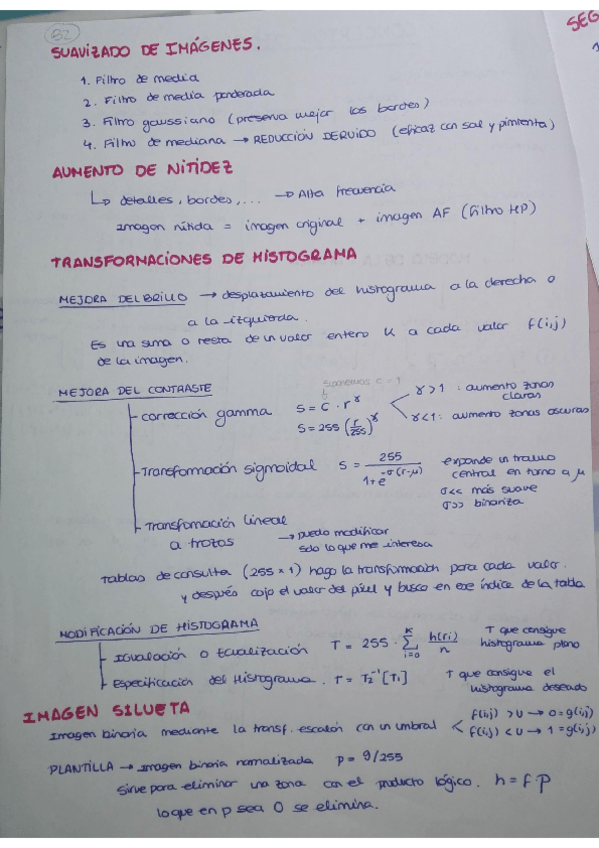 B2
SEG
SUAVIZADO DE IMÁGENES.
1. Filtro de media
2. Filtro de media ponderada
3. Filtro gaussiano (preserva mejor los bordes)
4. Filtro de mediana → REDUCCIÓN DE RUIDO (eficaz con sal y pimienta)
AUMENTO DE NITIDEZ
↳ detalles, bordes, ... → Alta frecuencia
Imagen nítida = imagen original + imagen AF (Filtro HP)
TRANSFORMACIONES DE HISTOGRAMA
MEJORA DEL BRILLO → desplazamiento del histograma a la derecha o
a la izquierda.
Es una suma o resta de un valor entero K a cada valor f(i,j)
de la imagen.
MEJORA DEL CONTRASTE
suponemos c = 1
Corrección gamma S = C · r^γ γ > 1 : aumento zonas claras
S = 255 (r/255)^γ γ < 1 : aumento zonas oscuras
Transformación sigmoidal S = 255 / (1 + e^-σ(r-μ)) expande un tramo
central en torno a μ
σ<< más suave
σ>> binariza
Transformación lineal
a trozos → puedo modificar
solo lo que me interesa
Tablas de consulta (255 x 1) hago la transformación para cada valor
y después cojo el valor del píxel y busco en ese índice de la tabla
MODIFICACIÓN DE HISTOGRAMA
Igualación o Ecualización T = 255 · Σ_{i=0}^{K} h(ri)/n T que consigue
histograma plano
Especificación del Histograma. T = T2^-1 [T1] T que consigue el
histograma deseado
IMAGEN SILUETA
Imagen binaria mediante la transf. escalón con un umbral f(i,j) > U → 0 = g(i,j)
f(i,j) < U → 1 = g(i,j)
PLANTILLA → Imagen binaria normalizada p = g/255
Sirve para eliminar una zona con el producto lógico. h = f·p
lo que en p sea 0 se elimina.